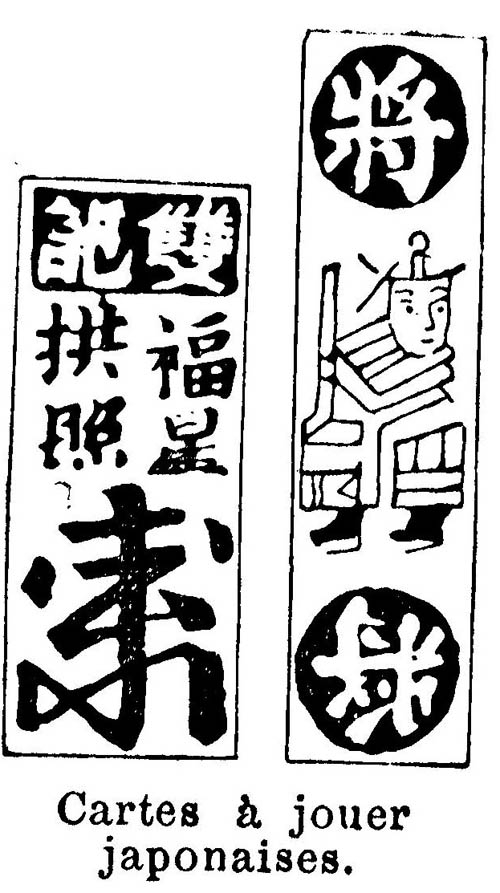 雙記
福星
拱照
將
將
Cartes à jouer
japonaises.